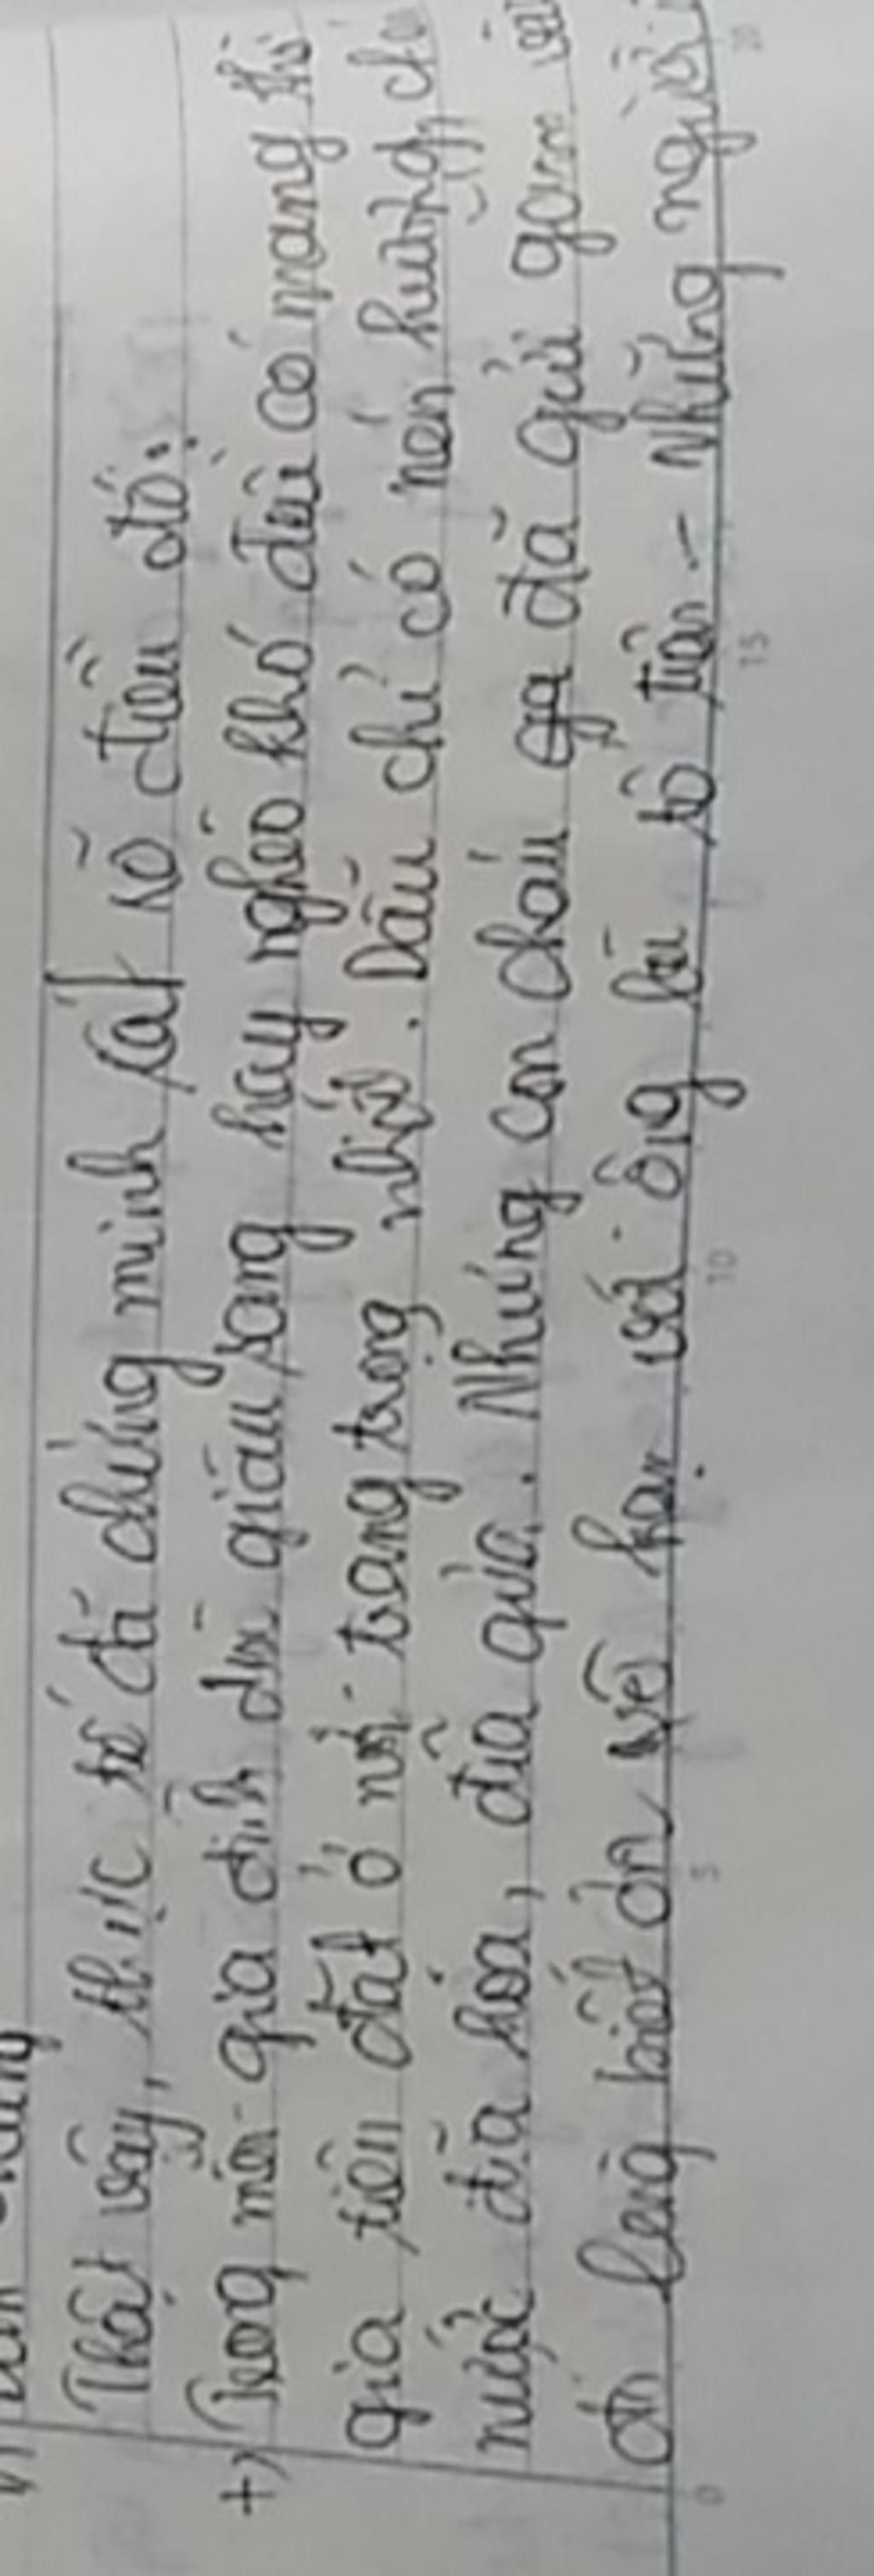 Thật vậy, thực tế đã chứng minh rất rõ điều đó:
+) Trong mỗi gia đình dù giàu sang hay nghèo khó đều có trang thờ
gia tiên đặt ở nơi trang trọng nhất. Dẫu chỉ có nén hương, chén
nước, đĩa hoa, đĩa quả. Nhưng con cháu đã gửi gắm vào
đó lòng biết ơn vô hạn với ông bà tổ tiên - Những người